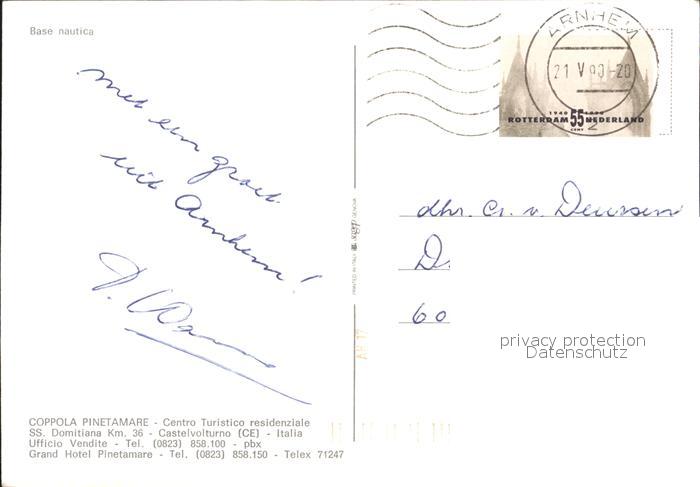 Base nautica
met een groet
uit Arnhem!
COPPOLA PINETAMARE - Centro Turistico residenziale
SS. Domitiana Km. 36 - Castelvolturno (CE) - Italia
Ufficio Vendite - Tel. (0823) 858.100 - pbx
Grand Hotel Pinetamare - Tel. (0823) 858.150 - Telex 71247
PRINTED IN ITALY
GENOVA
ARNHEM
21 V 90-20
2
1940 1990
ROTTERDAM 55 NEDERLAND
CENT
dhr. Cr. v. Deursen
D.
60
privacy protection
Datenschutz